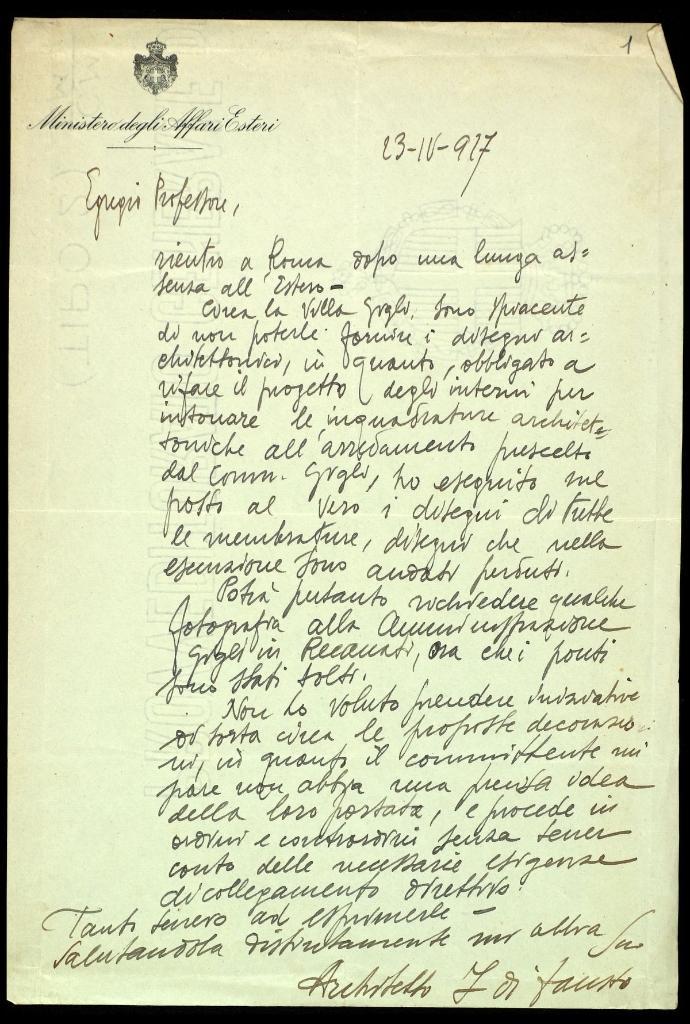 1
Ministero degli Affari Esteri
23-IV-927
Egregio Professore,
rientro a Roma dopo una lunga as=
senza all'Estero -
Circa la Villa Gigli, sono spiacente
di non poterle fornire i disegni ar=
chitettonici, in quanto, obbligato a
rifare il progetto degli interni per
intonare le inquadrature architet=
toniche all'arredamento prescelto
dal Comm. Gigli, ho eseguito sul
posto al vero i disegni di tutte
le membrature, disegni che nella
esecuzione sono andati perduti.
Potrà pertanto richiedere qualche
fotografia alla Amministrazione
Gigli in Recanati, ora che i ponti
sono stati tolti.
Non ho voluto prendere iniziative
di sorta circa le proposte decorazio
ni, in quanto il committente mi
pare non abbia una precisa idea
della loro portata, e procede in
ordini e contrordini senza tener
conto delle necessarie esigenze
di collegamento direttivo.
Tanto tenevo ad esprimerle -
Salutandola distintamente mi abbia Suo
Architetto F di Fausto